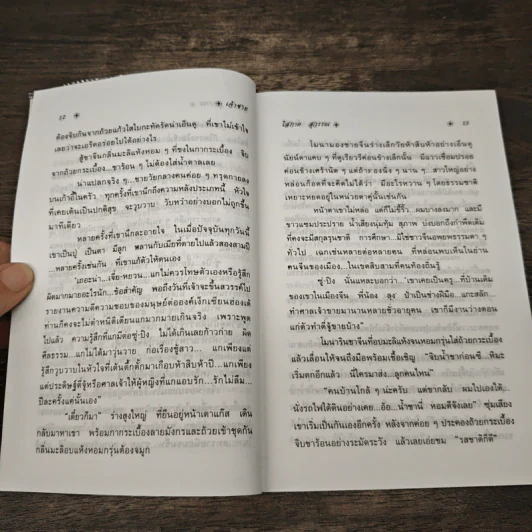 22 ❋ เจ้าซาต
ต้องจิบกันจากถ้วยแก้วใสใบกะทัดรัดน่าเอ็นดู ที่เขาไม่เข้าใจ
เลยว่าจะเอร็ดอร่อยไปได้อย่างไร
สู้ชาจีนกลิ่นมะลิแห้งหอม ๆ ที่ชงในกากระเบื้อง จิบ
จากถ้วยกระเบื้อง...ชาร้อน ๆ ไม่ต้องใส่น้ำตาลเลย
น่าแปลกจริง ๆ...ชายวัยกลางคนค่อย ๆ ทรุดกายลง
บนเก้าอี้ในครัว ทุกครั้งที่เขานึกถึงความหลังประเภทนี้ หัวใจ
ที่เคยเต้นเป็นปกติสุข จะวูบวาบ วับหวำอย่างบอกไม่ถูกขึ้น
มาทีเดียว
หลายครั้งที่เขานึกละอายใจ ในเมื่อปัจจุบันทุกวันนี้
เขาเป็นปู่ เป็นตา มีลูก หลานกับเมียที่ตายไปแล้วสองสามปี
...หลายครั้งเช่นกัน ที่เขาแก้ตัวให้ตนเอง
แกไม่ควรโทษตัวเองหรือรู้สึก
ผิดมากมายอะไรนัก...ข้อสำคัญ พอถึงวันที่เจ้าจะขึ้นสวรรค์ไป
รายงานความดีความชอบของมนุษย์ต่อองค์เง็กเซียนฮ่องเต้
ท่านก็คงจะไม่ตำหนิติเตียนแกมากมายเกินจริง เพราะพูด
ไปแล้ว ความรู้สึกที่แกมีต่อซู่-ปิง ไม่ได้เกินเลยก้าวก่าย ผิด
ศีลธรรม...แกไม่ได้มาวุ่นวาย ก่อเรื่องชู้สาว...แกเพียงแต่
รู้สึกวูบวาบในหัวใจที่เต้นตึกตั๊กมาเกือบห้าสิบห้าปี...แกเพียง
แต่ประดิษฐ์ตี่จู่หรือศาลเจ้าให้ผู้หญิงที่แกแอบรัก...รักไม่ลืม...
ปีละครั้งแค่นั้นเอง"
"เดี๋ยวก็มา" ร่างสูงใหญ่ ที่ยืนอยู่หน้าเตาแก๊ส เดิน
กลับมาหาเขา พร้อมกากระเบื้องลายมังกรและถ้วยเข้าชุดกัน
กลิ่นมะลิอบแห้งหอมกรุ่นต้องจมูก
โสภาค สุวรรณ ❋ 23
โมนามองชายจีนร่างเล็กวัยห้าสิบห้าอย่างเอ็นดู
นัยน์ตาแคบ ๆ ที่ดูเรียวรีค่อนข้างเล็กนั้น มีแววเชื่อมปรอย
ค่อนข้างเศร้านิด ๆ แต่ถ้าจ้องนิ่ง ๆ นาน ๆ...สาวใหญ่อย่าง
หล่อนก็อดที่จะคิดไม่ได้ว่า มีอะไรหวาน ๆ โดยธรรมชาติ
เหยาะหยดอยู่ในหน่วยตาคู่นั้นเช่นกัน
หน้าตาเขาไม่หล่อ แต่ก็ไม่ขี้ริ้ว...ผมบางลงมาก และมี
ขาวแซมประปราย น้ำเสียงนุ่มทุ้ม สุภาพ บ่งบอกถึงกำพืดเดิม
ที่คงจะมีสกุลรุนชาติ การศึกษา...มิใช่ชาวจีนอพยพธรรมดา ๆ
ทั่วไป เฉกเช่นหลายต่อหลายคน ที่หล่อนพบเห็นในย่าน
คนจีนของเมือง...ในเขตสิบสามที่คนท้องถิ่นรู้
ซู่-ปิง นั่นแหละบอกว่า "เขาเคยเป็นครู...ที่บ้านเดิม
ของเขาในเมืองจีน พี่น้อง ลุง ป้าเป็นช่างฝีมือ...แกะสลัก...
ทำศาลเจ้าขายมานานหลายชั่วอายุคน เขาก็มีงานว่างตอน
แก่ตัวทำตี่จู้ขายบ้าง"
โมนารินชาจีนที่อบมะลิแห้งจนหอมกรุ่นใส่ถ้วยกระเบื้อง
แล้วเลื่อนให้จนถึงมือพร้อมเชื้อเชิญ "จิบน้ำชาก่อนซิ...หิมะ
เริ่มตกอีกแล้ว นี่ใครมาส่ง...ลูกคนไหน"
"คนบ้านใกล้ ๆ น่ะครับ แต่ขากลับ ผมไปเองได้
นั่งรถไฟใต้ดินอย่างเคย...อ้อ...น้ำชานี่ หอมดีจังเลย" ซุ่มเสียง
เขาเริ่มเป็นกันเองอีกครั้ง หลังจากค่อย ๆ ประคองถ้วยกระเบื้อง
จิบชาร้อนอย่างระมัดระวัง แล้วเลยเอ่ยชม "รสชาติก็ดี"